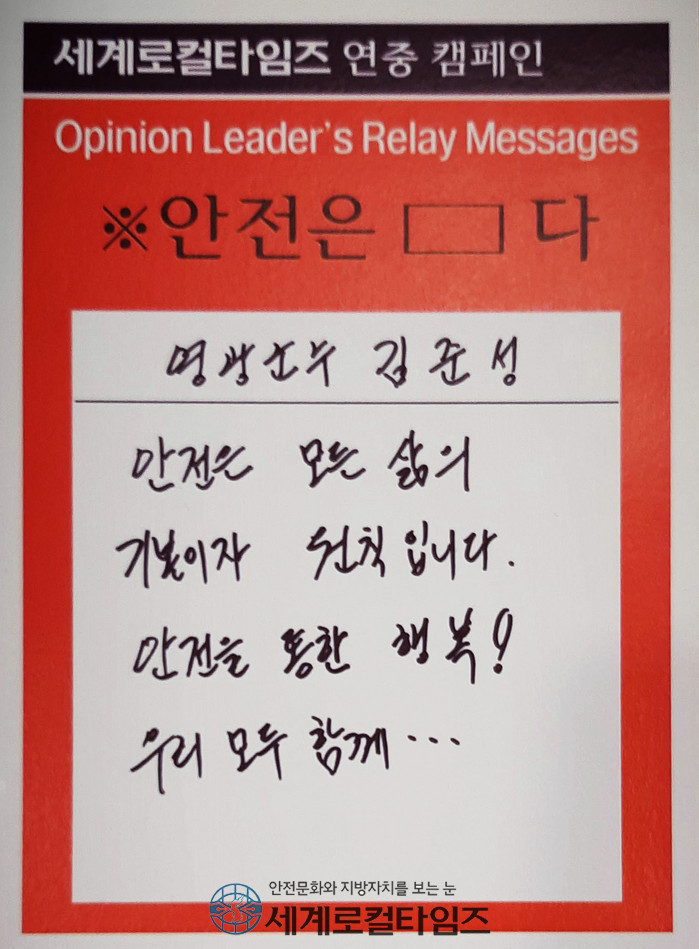 세계로컬타임즈 연중 캠페인
Opinion Leader's Relay Messages
※안전은 □ 다
영광군수 김준성
안전은 모든 삶의
기본이자 원칙입니다.
안전을 통한 행복!
우리 모두 함께...
안전문화와 지방자치를 보는 눈
세계로컬타임즈